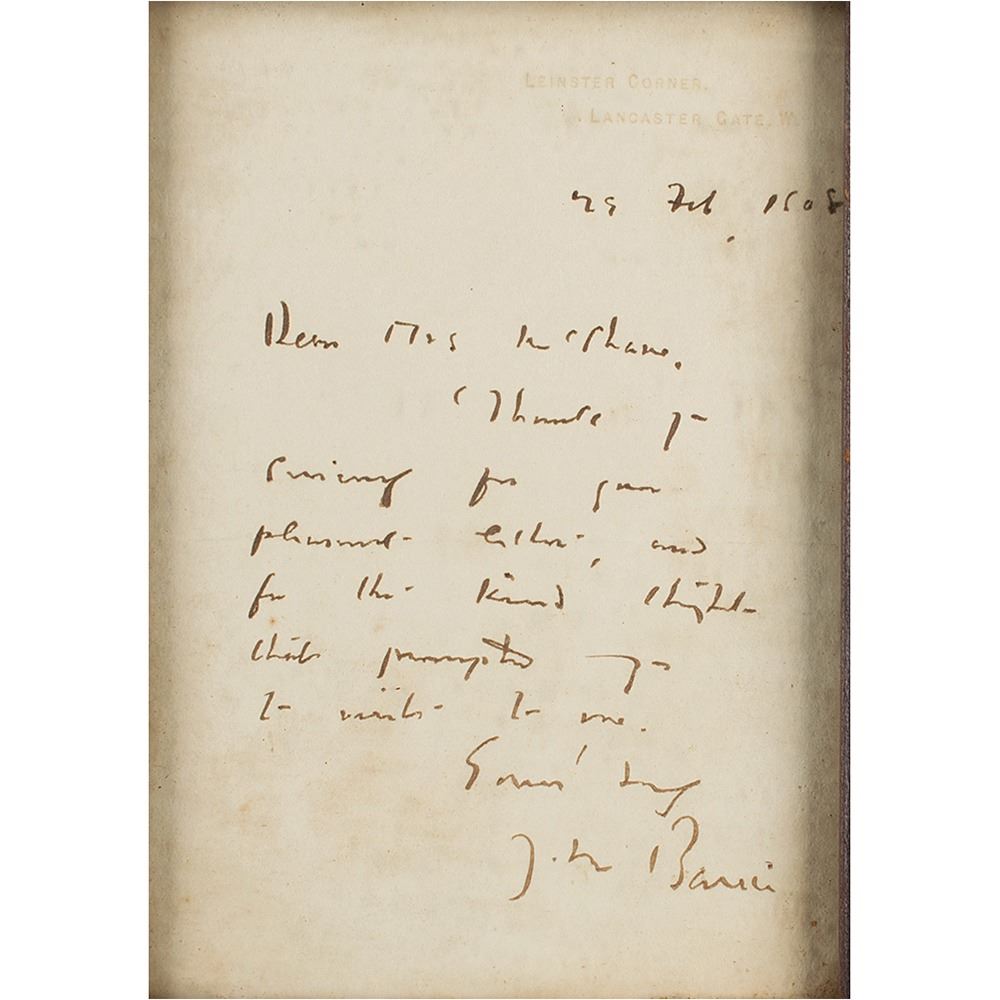 LEINSTER CORNER,
LANCASTER GATE. W.
Feb 1908
Dear Mrs McShane,
Thank you
sincerely for your
pleasant letter, and
for the kind thought
that prompted you
to write to me.
Yours truly
J. M. Barrie